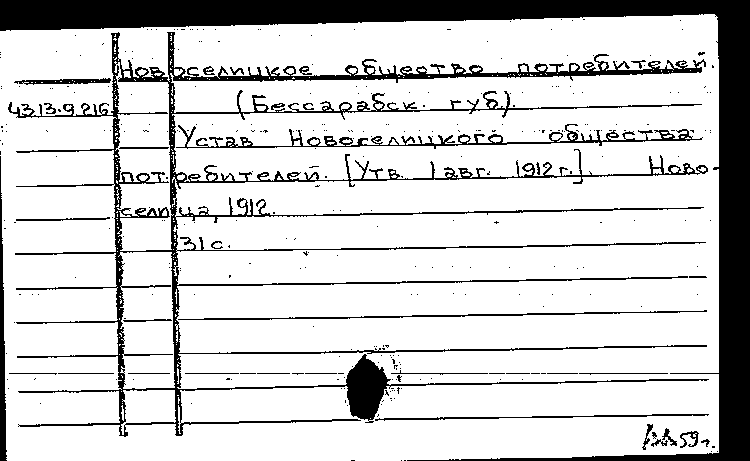 Новоселицкое общество потребителей.
43.13.9.216 (Бессарабск. губ).
Устав Новоселицкого общества
потребителей. [Утв. 1 авг. 1912 г.]. Ново-
селица, 1912.
31 с.
59 г.